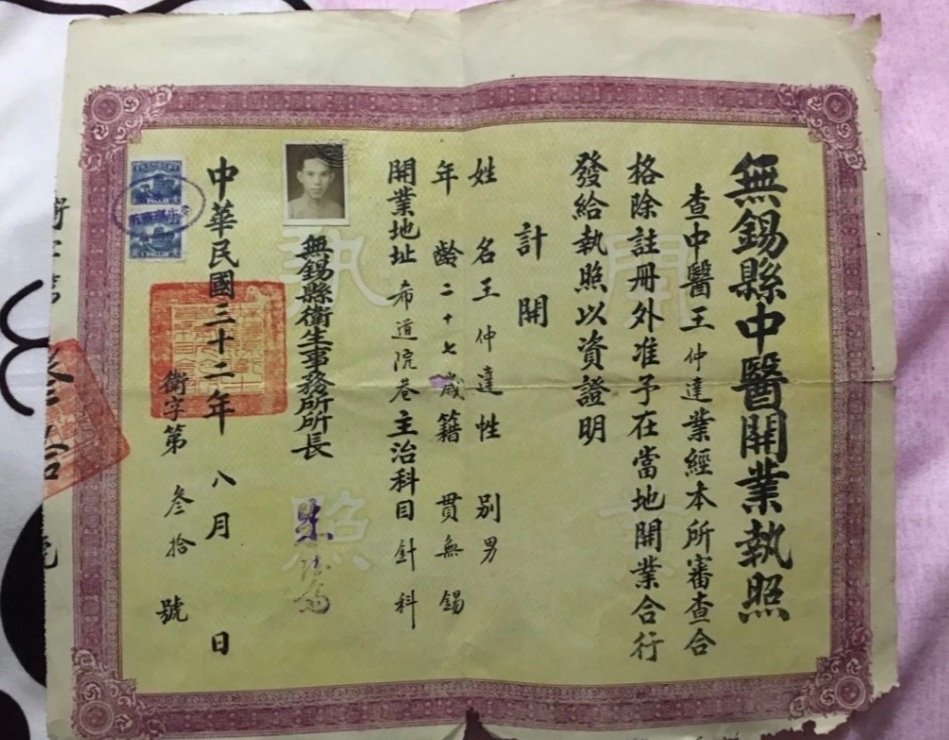 無錫縣中醫開業執照
查中醫王仲達業經本所審查合
格除註册外准予在當地開業合行
發給執照以資證明
計開
姓名王仲達性別男
年齡二十七歲籍貫無錫
開業地址希道院巷主治科目針科
無錫縣衛生事務所所長
朱
中華民國三十二年八月日
衛字第叁拾號
開業
執照